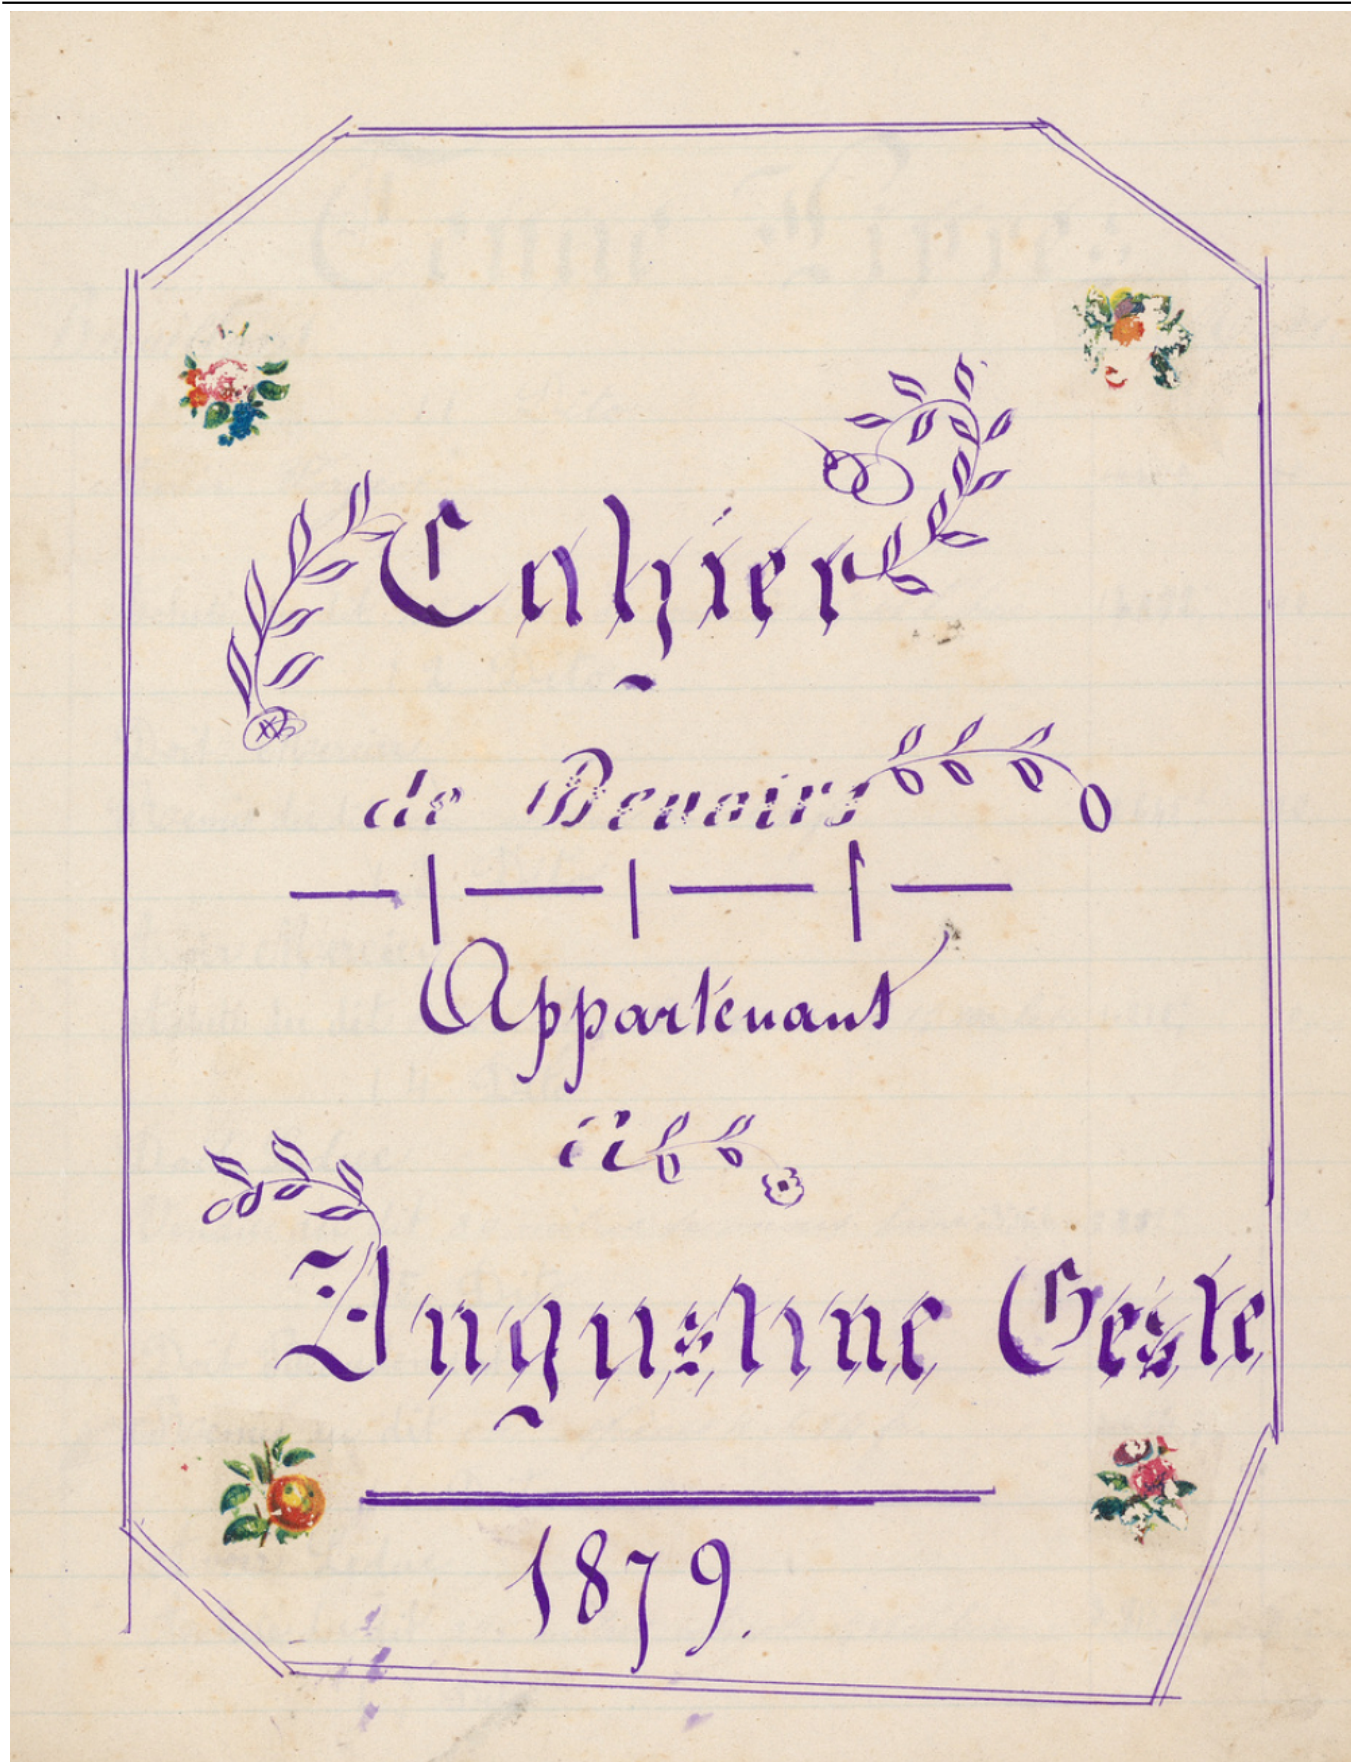 Cahier
de Devoirs
Appartenant
à
Augustine Geste
1879.